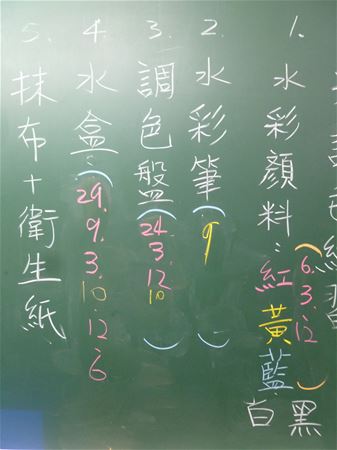 1. 水彩顏料:紅黃藍
(6. 3. 12)
白黑
2. 水彩筆(9)
3. 調色盤(24. 3. 12 10)
4. 水盒:(29. 9. 3. 10. 12. 6
5. 抹布+衛生紙.